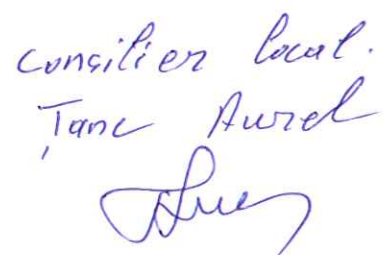 consilier local.
Țanc Aurel